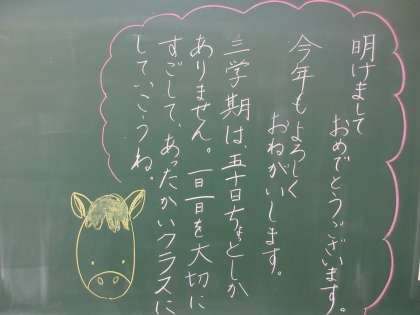 明けまして
おめでとうございます。
今年もよろしく
おねがいします。
三学期は、五十日ちょっとしか
ありません。一日一日を大切に
すごして、あったかいクラスに
していこうね。